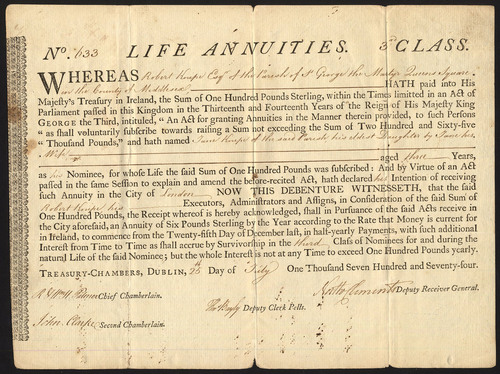 No. 633 LIFE ANNUITIES. 3d CLASS.
WHEREAS Robert Knipe Esqr of the Parish of St George the Martyr Queens Square
in the County of Middlesex HATH paid into His
Majesty's Treasury in Ireland, the Sum of One Hundred Pounds Sterling, within the Times limited in an Act of
Parliament passed in this Kingdom in the Thirteenth and Fourteenth Years of the Reign of His Majesty King
GEORGE the Third, intituled, "An Act for granting Annuities in the Manner therein provided, to such Persons
"as shall voluntarily subscribe towards raising a Sum not exceeding the Sum of Two Hundred and Sixty-five
"Thousand Pounds," and hath named Jane Knipe of the said Parish his eldest Daughter by Jane his
Wife aged three Years,
as his Nominee, for whose Life the said Sum of One Hundred Pounds was subscribed: And by Virtue of an Act
passed in the same Session to explain and amend the before-recited Act, hath declared his Intention of receiving
such Annuity in the City of London NOW THIS DEBENTURE WITNESSETH, that the said
Robert Knipe his Executors, Administrators and Assigns, in Consideration of the said Sum of
One Hundred Pounds, the Receipt whereof is hereby acknowledged, shall in Pursuance of the said Acts receive in
the City aforesaid, an Annuity of Six Pounds Sterling by the Year according to the Rate that Money is current for
in Ireland, to commence from the Twenty-fifth Day of December last, in half-yearly Payments, with such additional
Interest from Time to Time as shall accrue by Survivorship in the third Class of Nominees for and during the
natural Life of the said Nominee; but the whole Interest is not at any Time to exceed One Hundred Pounds yearly.
TREASURY-CHAMBERS, DUBLIN, Day of July One Thousand Seven Hundred and Seventy-four.
Chief Chamberlain. Deputy Clerk Pells. Clements Deputy Receiver General.
John Clarke Second Chamberlain.